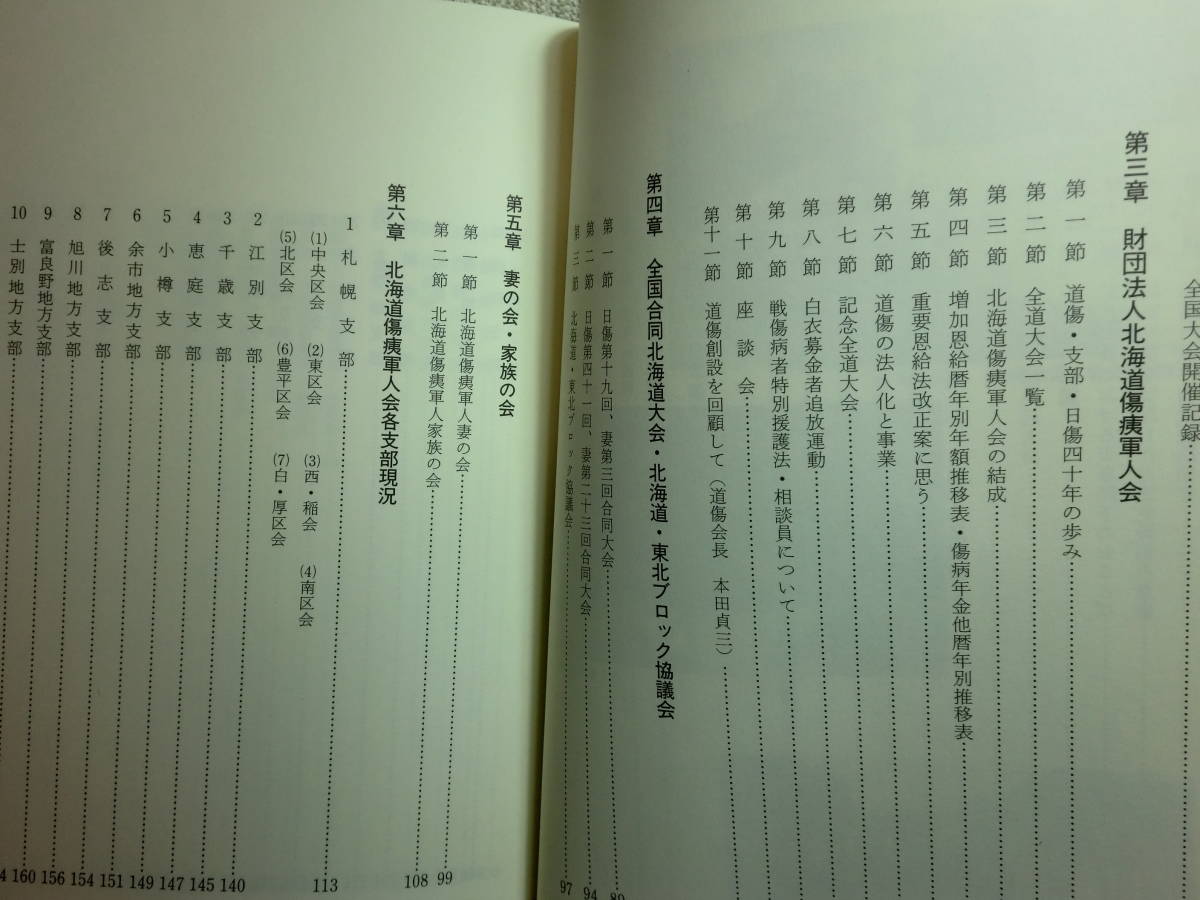 全国大会開催記録
第三章 財団法人北海道傷痍軍人会
第一節 道傷・支部・日傷四十年の歩み
第二節 全道大会一覧
第三節 北海道傷痍軍人会の結成
第四節 増加恩給暦年別年額推移表・傷病年金他暦年別推移表
第五節 重要恩給法改正案に思う
第六節 道傷の法人化と事業
第七節 記念全道大会
第八節 白衣募金者追放運動
第九節 戦傷病者特別援護法・相談員について
第十節 座談会
第十一節 道傷創設を回顧して（道傷会長 本田貞三）
第四章 全国合同北海道大会・北海道・東北ブロック協議会
第一節 日傷第十九回、妻第三回合同大会
第二節 日傷第四十一回、妻第二十三回合同大会 94
第三節 北海道・東北ブロック協議会 97
第五章 妻の会・家族の会
第一節 北海道傷痍軍人妻の会 99
第二節 北海道傷痍軍人家族の会 108
第六章 北海道傷痍軍人会各支部現況
1 札幌支部 113
(1)中央区会 (2)東区会 (3)西・稲会 (4)南区会
(5)北区会 (6)豊平区会 (7)白・厚区会
2 江別支部 140
3 千歳支部 145
4 恵庭支部 147
5 小樽支部 149
6 余市地方支部 151
7 後志支部 154
8 旭川地方支部 156
9 富良野地方支部 160
10 士別地方支部